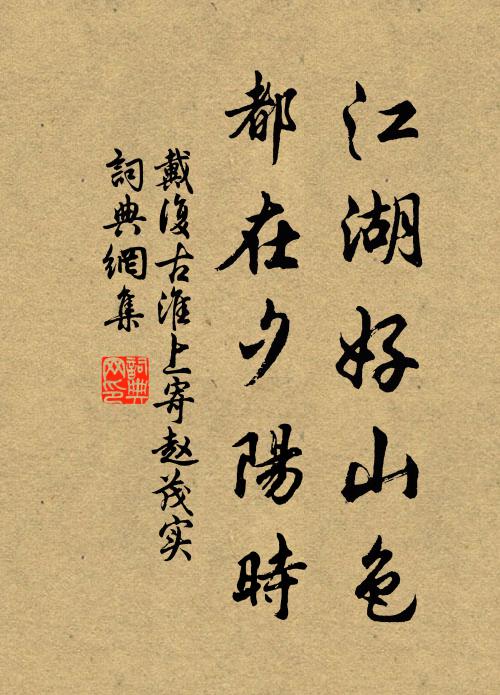 江湖好山色
都在夕陽時
戴復古淮上寄赵茂实
詞典網集
詞典网印